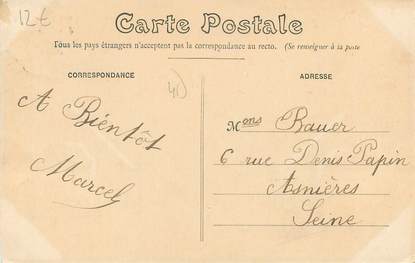 12€
Carte Postale
Tous les pays étrangers n'acceptent pas la correspondance au recto. (Se renseigner à la poste
CORRESPONDANCE
ADRESSE
40
A Bientôt
Marcel
Mons Bauer
6 rue Denis Papin
Asnières
Seine